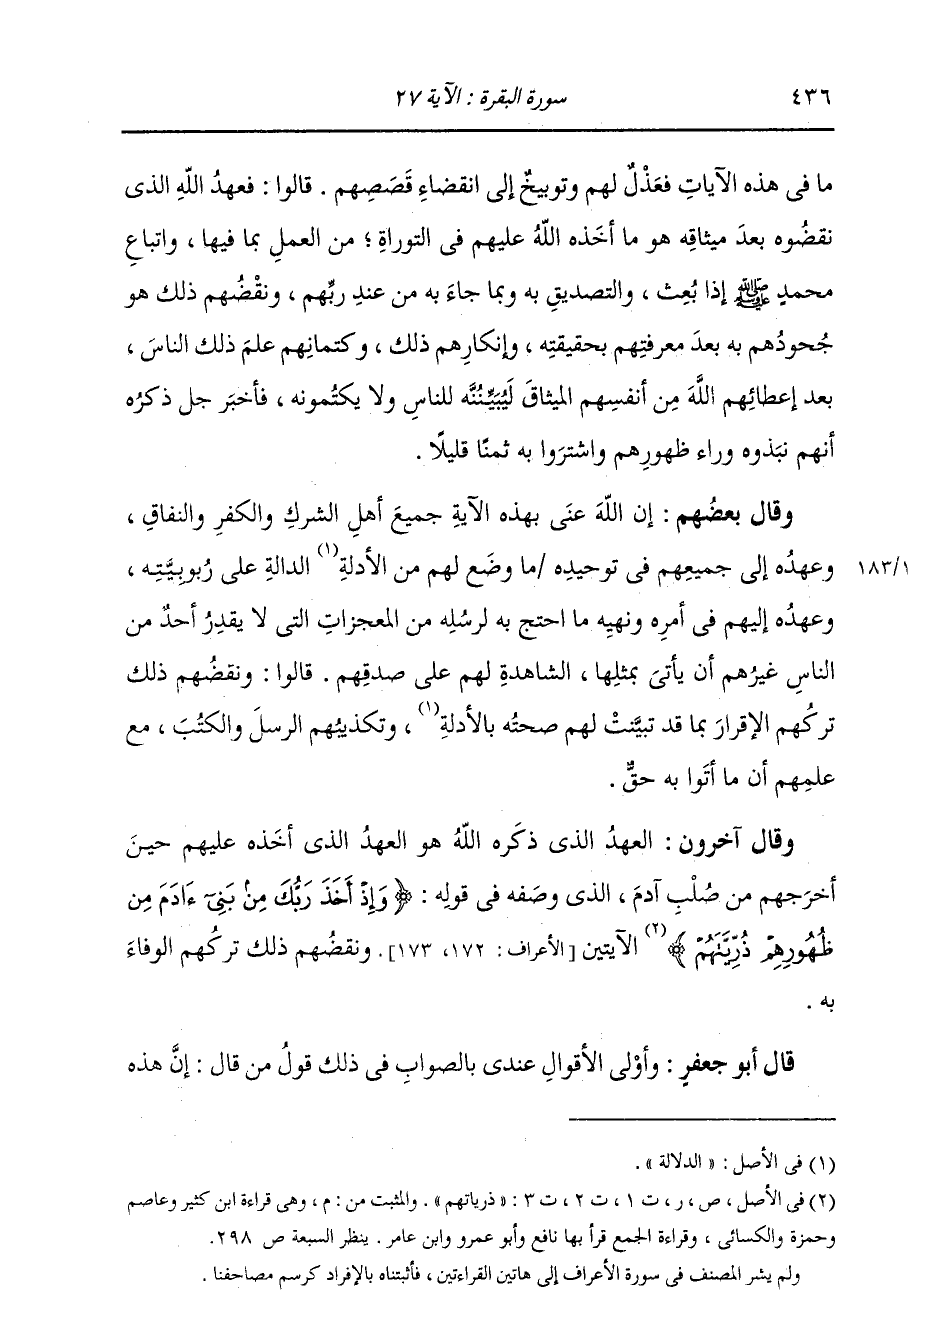 ٤٣٦ سورة البقرة : الآية ٢٧
ما فى هذه الآياتِ فعَذْلٌ لهم وتوبيخٌ إلى انقضاءِ قَصَصِهم . قالوا : فعهدُ اللَّهِ الذى
نقضُوه بعدَ ميثاقِه هو ما أخَذه اللَّهُ عليهم فى التوراةِ ؛ من العملِ بما فيها ، واتباعِ
محمدٍ ﷺ إذا بُعِث ، والتصديقِ به وبما جاءَ به من عندِ ربِّهم ، ونقْضُهم ذلك هو
جُحودُهم به بعدَ معرفتِهم بحقيقتِه ، وإنكارِهم ذلك ، وكتمانِهم علمَ ذلك الناسَ ،
بعد إعطائِهم اللَّهَ مِن أنفسِهم الميثاقَ لَيُبَيِّنُنَّه للناسِ ولا يكتُمونه ، فأخبَر جل ذكرُه
أنهم نبَذوه وراء ظهورِهم واشترَوا به ثمنًا قليلًا .
وقال بعضُهم : إن اللَّهَ عنَى بهذه الآيةِ جميعَ أهلِ الشركِ والكفرِ والنفاقِ ،
وعهدُه إلى جميعِهم فى توحيدِه /ما وضَع لهم من الأدلةِ(١) الدالةِ على رُبوبِيَّتِه ، ١٨٣/١
وعهدُه إليهم فى أمرِه ونهيِه ما احتج به لرسُلِه من المعجزاتِ التى لا يقدِرُ أحدٌ من
الناسِ غيرُهم أن يأتىَ بمثلِها ، الشاهدةِ لهم على صدقِهم . قالوا : ونقضُهم ذلك
تركُهم الإقرارَ بما قد تبيَّنتْ لهم صحتُه بالأدلةِ(١) ، وتكذيبُهم الرسلَ والكتُبَ ، مع
علمِهم أن ما أتَوا به حقٌّ .
وقال آخرون : العهدُ الذى ذكَره اللَّهُ هو العهدُ الذى أخَذه عليهم حينَ
أخرَجهم من صُلْبِ آدمَ ، الذى وصَفه فى قولِه : ﴿ وَإِذْ أَخَذَ رَبُّكَ مِنۢ بَنِىٓ ءَادَمَ مِن
ظُهُورِهِمْ ذُرِّيَّتَهُمْ ﴾(٢) الآيتين [الأعراف : ١٧٢، ١٧٣] . ونقضُهم ذلك تركُهم الوفاءَ
به .
قال أبو جعفرٍ : وأوْلى الأقوالِ عندى بالصوابِ فى ذلك قولُ من قال : إنَّ هذه
(١) فى الأصل : « الدلالة » .
(٢) فى الأصل ، ص ، ر ، ت ١ ، ت ٢ ، ت ٣ : « ذرياتهم » . والمثبت من : م ، وهى قراءة ابن كثير وعاصم
وحمزة والكسائى ، وقراءة الجمع قرأ بها نافع وأبو عمرو وابن عامر . ينظر السبعة ص ٢٩٨.
ولم يشر المصنف فى سورة الأعراف إلى هاتين القراءتين ، فأثبتناه بالإفراد كرسم مصاحفنا .